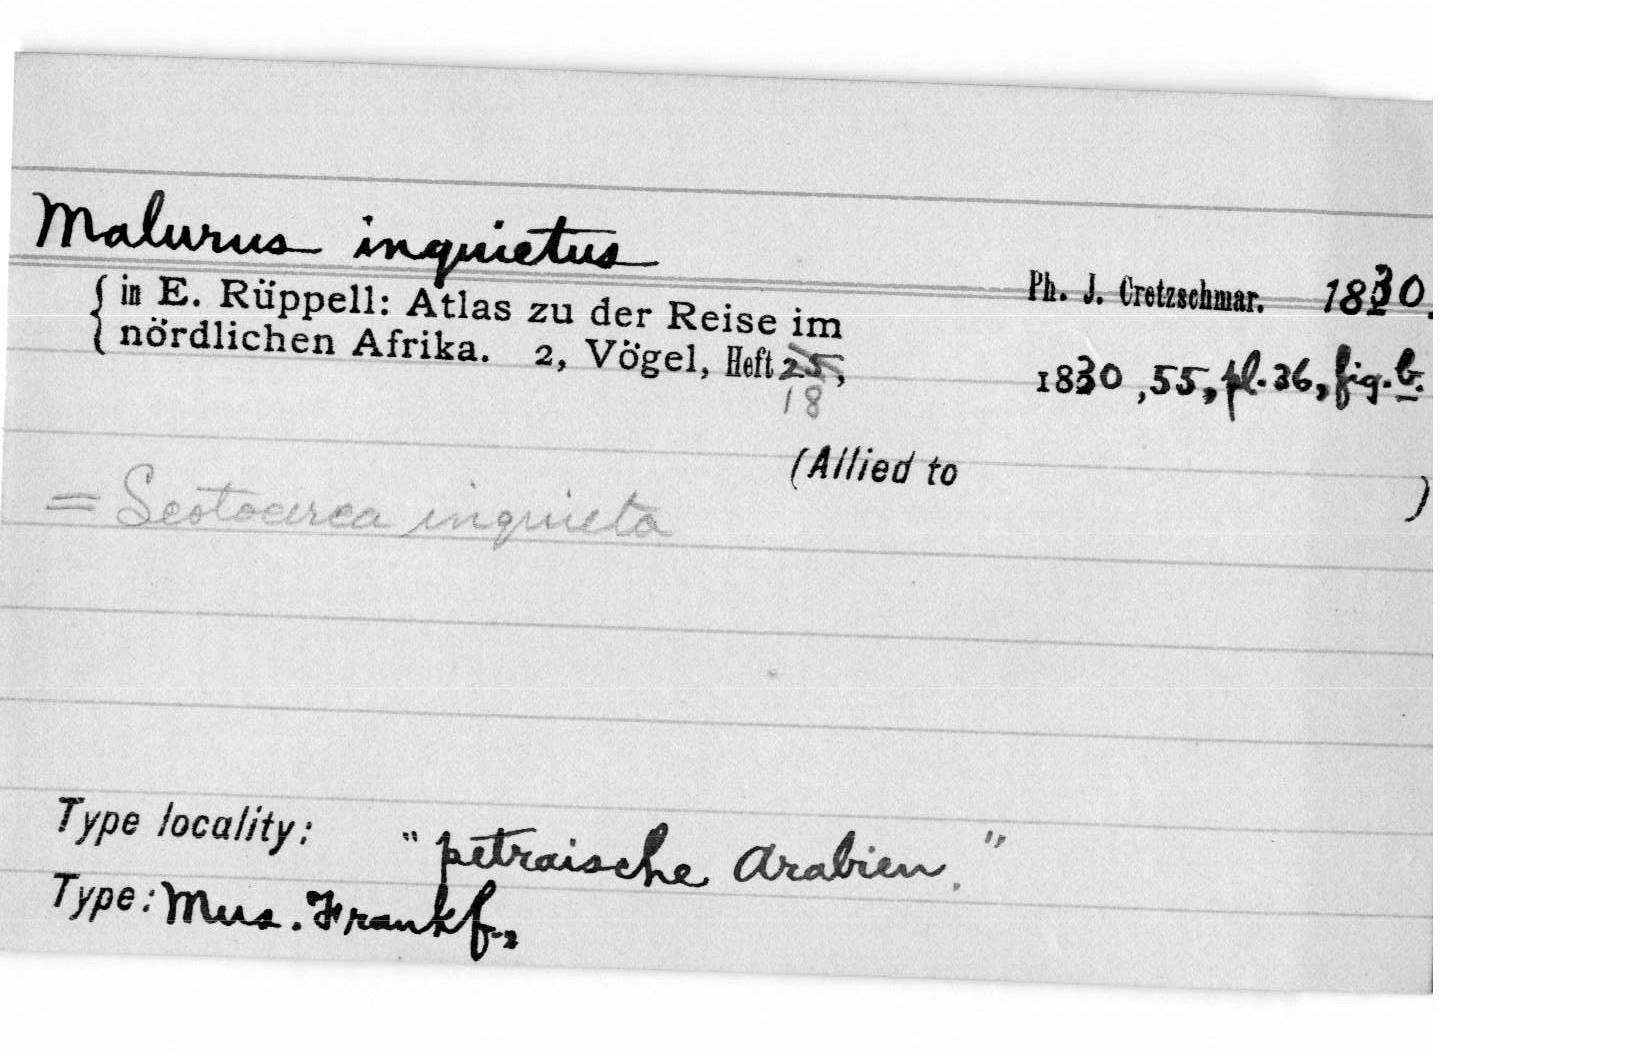 Malurus inquietus
Ph. J. Cretzschmar. 1830.
{ in E. Rüppell: Atlas zu der Reise im
nördlichen Afrika. 2, Vögel, Heft 25, 1830, 55, pl. 36, fig. b.
18
(Allied to )
= Scotocerca inquieta
Type locality: "petraische Arabien."
Type: Mus. Frankf.